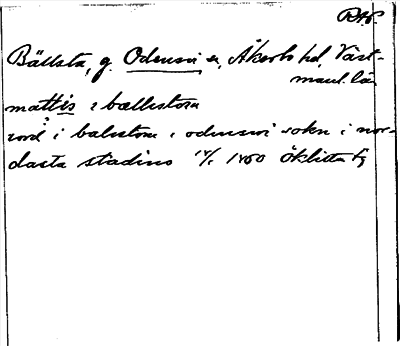 RAP
Bällsta, g. Odensvi sn, Åkerbo hd, Väst-
manl. län
mattis i bællistom
iord i balistom i odensvi sokn i nor-
dasta stadino 14/1 1460 Öklista